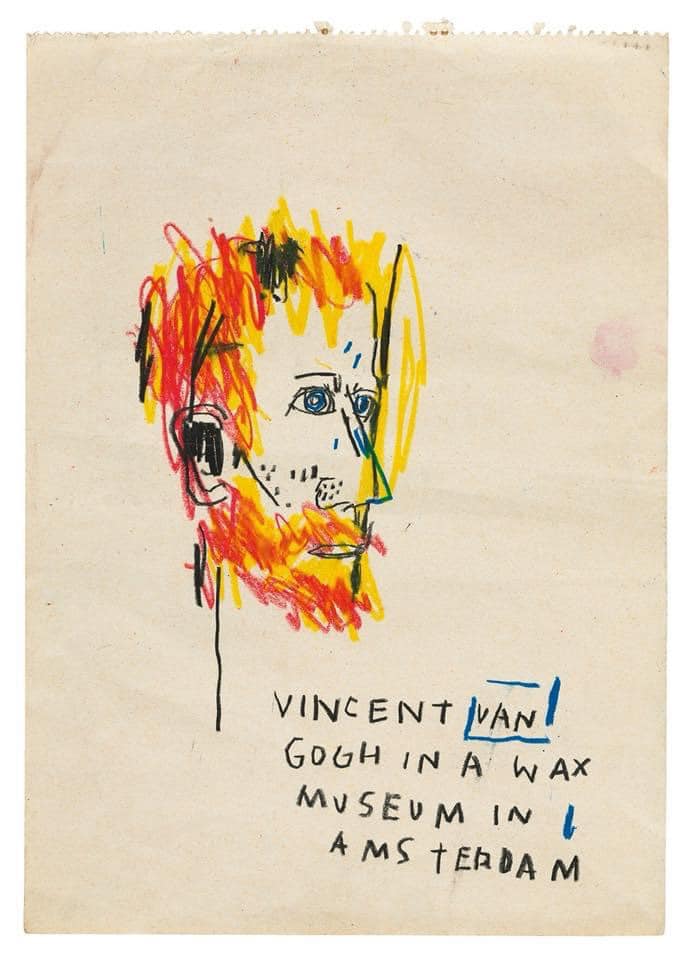 VINCENT VAN
GOGH IN A WAX
MUSEUM IN
AMSTERDAM